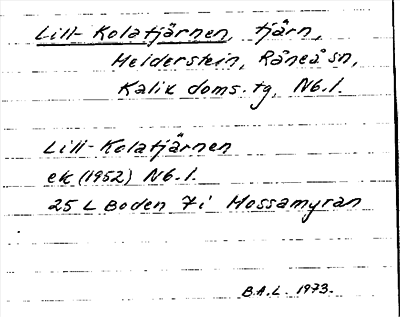 Lill-Kolatjärnen, tjärn,
Heiderstein, Råneå sn,
Kalix doms.tg, Nb.l.
Lill-Kolatjärnen
ek (1952) Nb.l.
25 L Boden 7i Mossamyran
B.A.L. 1973.